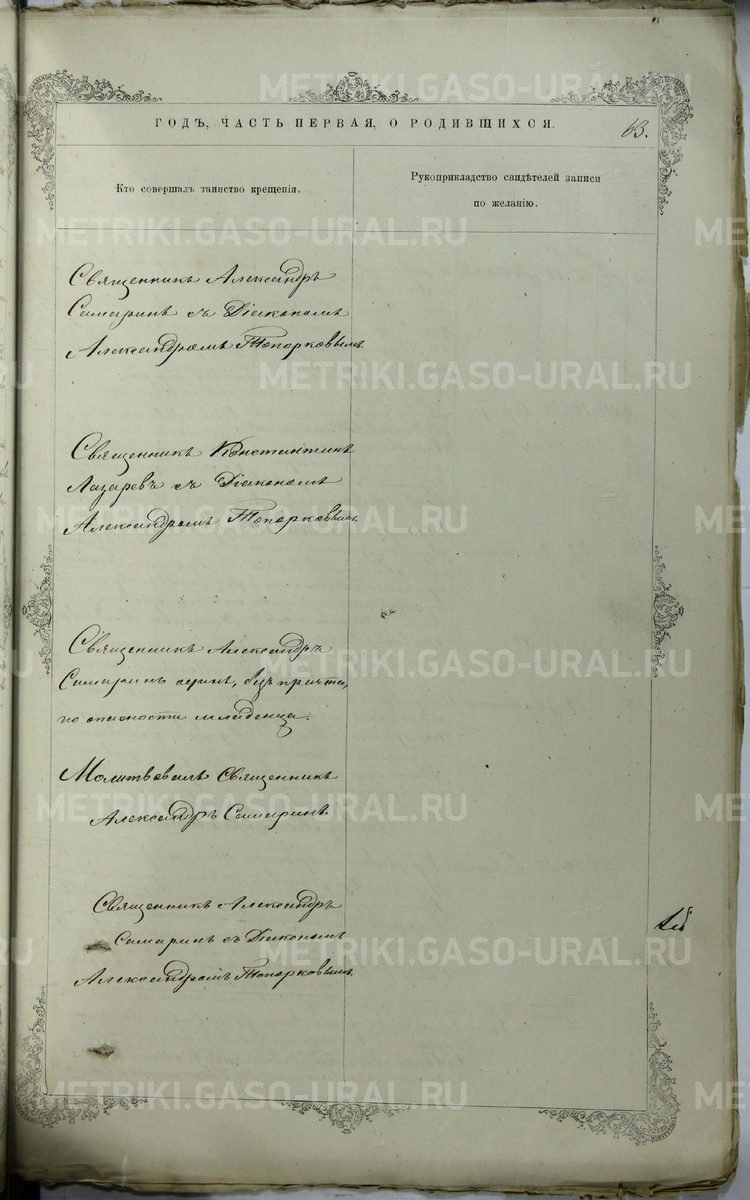 ГОДЪ, ЧАСТЬ ПЕРВАЯ, О РОДИВШИХСЯ.
63.
Кто совершалъ таинство крещенія.
Рукоприкладство свидѣтелей записи
по желанію.
Священникъ Александръ
Самаринъ съ Діакономъ
Александромъ Топорковымъ.
Священникъ Константинъ
Лазаревъ съ Діакономъ
Александромъ Топорковымъ.
Священникъ Александръ
Самаринъ одинъ, безъ причта,
по опасности младенца.
Молитвовалъ Священникъ
Александръ Самаринъ.
Священникъ Александръ
Самаринъ съ Діакономъ
Александромъ Топорковымъ.
METRIKI.GASO-URAL.RU
METRIKI.GASO-URAL.RU
METRIKI.GASO-URAL.RU
METRIKI.GASO-URAL.RU
METRIKI.GASO-URAL.RU
METRIKI.GASO-URAL.RU
METRIKI.GASO-URAL.RU
METRIKI.GASO-URAL.RU